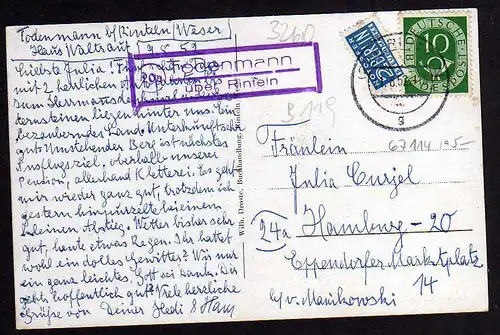 Todenmann b/Rinteln/Weser
Haus Waltraut 9.8.52
Liebste Julia! Fünf
mit 2 herrlichen
zum Hermannsdenkmal u.
ternsteinen liegen hinter uns. Ein
bezaubernder Land. Unterkunft sehr
gut. Umstehender Berg ist nächstes
Ausflugsziel, oberhalb unserer
Pension, allerhand Kletterei. Es geht
mir wieder ganz gut trotzdem ich
gestern hinpurzelte bei einem
kleinen Abstieg. Wetter bisher sehr
gut, heute etwas Regen. Ihr hattet
wohl ein dolles Gewitter? Wir nur
ein ganz leichtes, Gott sei Dank. Dir
gehts hoffentlich gut? Viele herzliche
Grüße von Deiner Hedi & Hans
20a
Todenmann
über Rinteln
Wilh. Droste, Buchhandlung, Rinteln
3260
B 119
NOTOPFER
2 BERLIN
STEUERMARKE
DEUTSCHE
10
BUNDESPOST
g
67114 105-
Fräulein
Julia Curjel
24a Hamburg-20
Eppendorfer Marktplatz
14
b/v. Manikowski